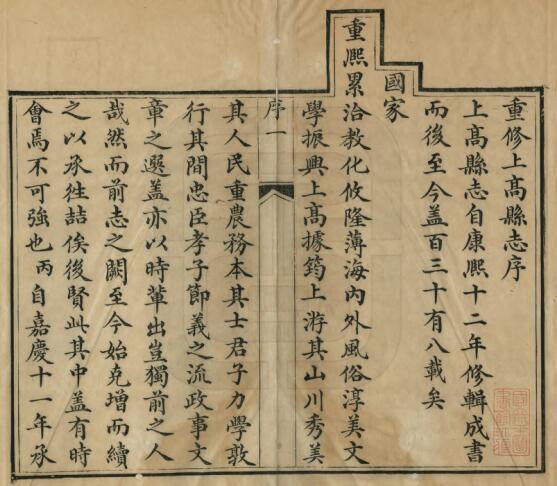 重修上髙縣志序
上髙縣志自康熙十二年修輯成書
而後至今盖百三十有八載矣
國家
重熈累洽教化攸隆薄海內外風俗淳美文
學振興上髙據筠上游其山川秀美
序一
其人民重農務本其士君子力學敦
行其間忠臣孝子節義之流政事文
章之選盖亦以時輩出豈獨前之人
哉然而前志之闕至今始克增而續
之以承徃喆俟後賢此其中盖有時
會焉不可強也丙自嘉慶十一年承